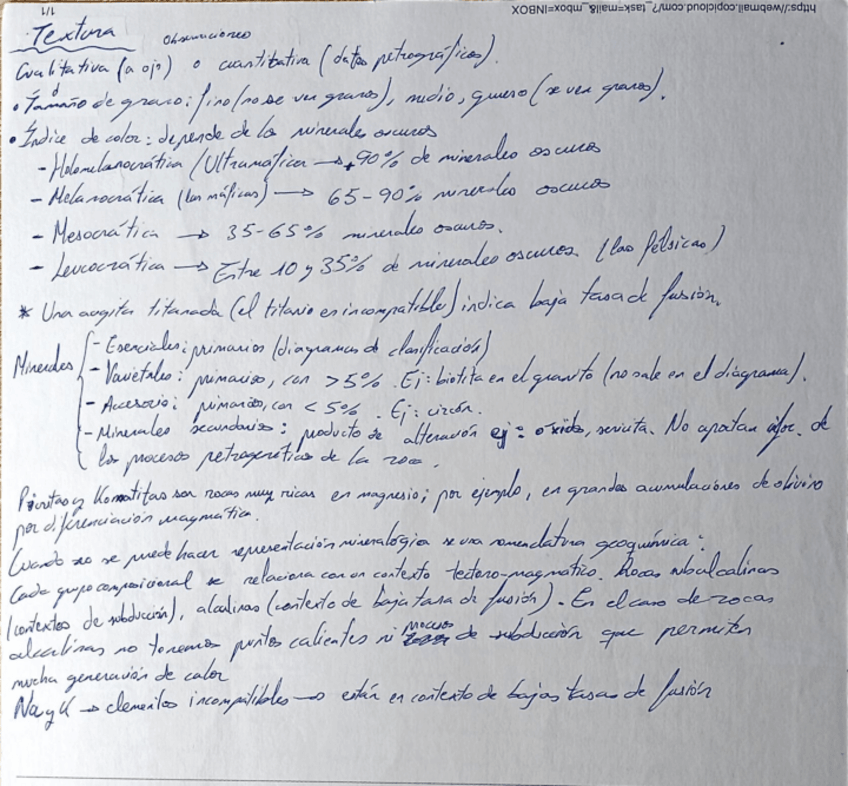 https://webmail.copicloud.com/?_task=mail&_mbox=INBOX
1/1
Textura Observaciones
Cualitativa (a ojo) o cuantitativa (datos petrográficos).
• Tamaño de grano: fino (no se ven granos), medio, grueso (se ven granos).
• Índice de color: depende de los minerales oscuros
- Holomelanocrática / Ultramáfica → +90% de minerales oscuros
- Melanocrática (las máficas) → 65-90% minerales oscuros
- Mesocrática → 35-65% minerales oscuros.
- Leucocrática → Entre 10 y 35% de minerales oscuros. (las félsicas)
* Una augita titanada (el titanio es incompatible) indica baja tasa de fusión.
Minerales
- Esenciales: primarios (diagramas de clasificación)
- Varietales: primarios, con >5%. Ej: biotita en el granito (no sale en el diagrama).
- Accesorio: primarios, con <5%. Ej: circón.
- Minerales secundarios: producto de alteración ej: óxido, sericita. No aportan infor. de
los procesos petrogenéticos de la roca.
Picritas y Komatitas son rocas muy ricas en magnesio; por ejemplo, en grandes acumulaciones de olivino
por diferenciación magmática.
Cuando no se puede hacer representación mineralógica se usa nomenclatura geoquímica:
Cada grupo composicional se relaciona con un contexto tectono-magmático. Rocas subalcalinas
(contextos de subducción), alcalinas (contexto de baja tasa de fusión). En el caso de rocas
alcalinas no tenemos puntos calientes ni procesos de subducción que permiten
mucha generación de calor
Na y K → elementos incompatibles → están en contexto de bajas tasas de fusión